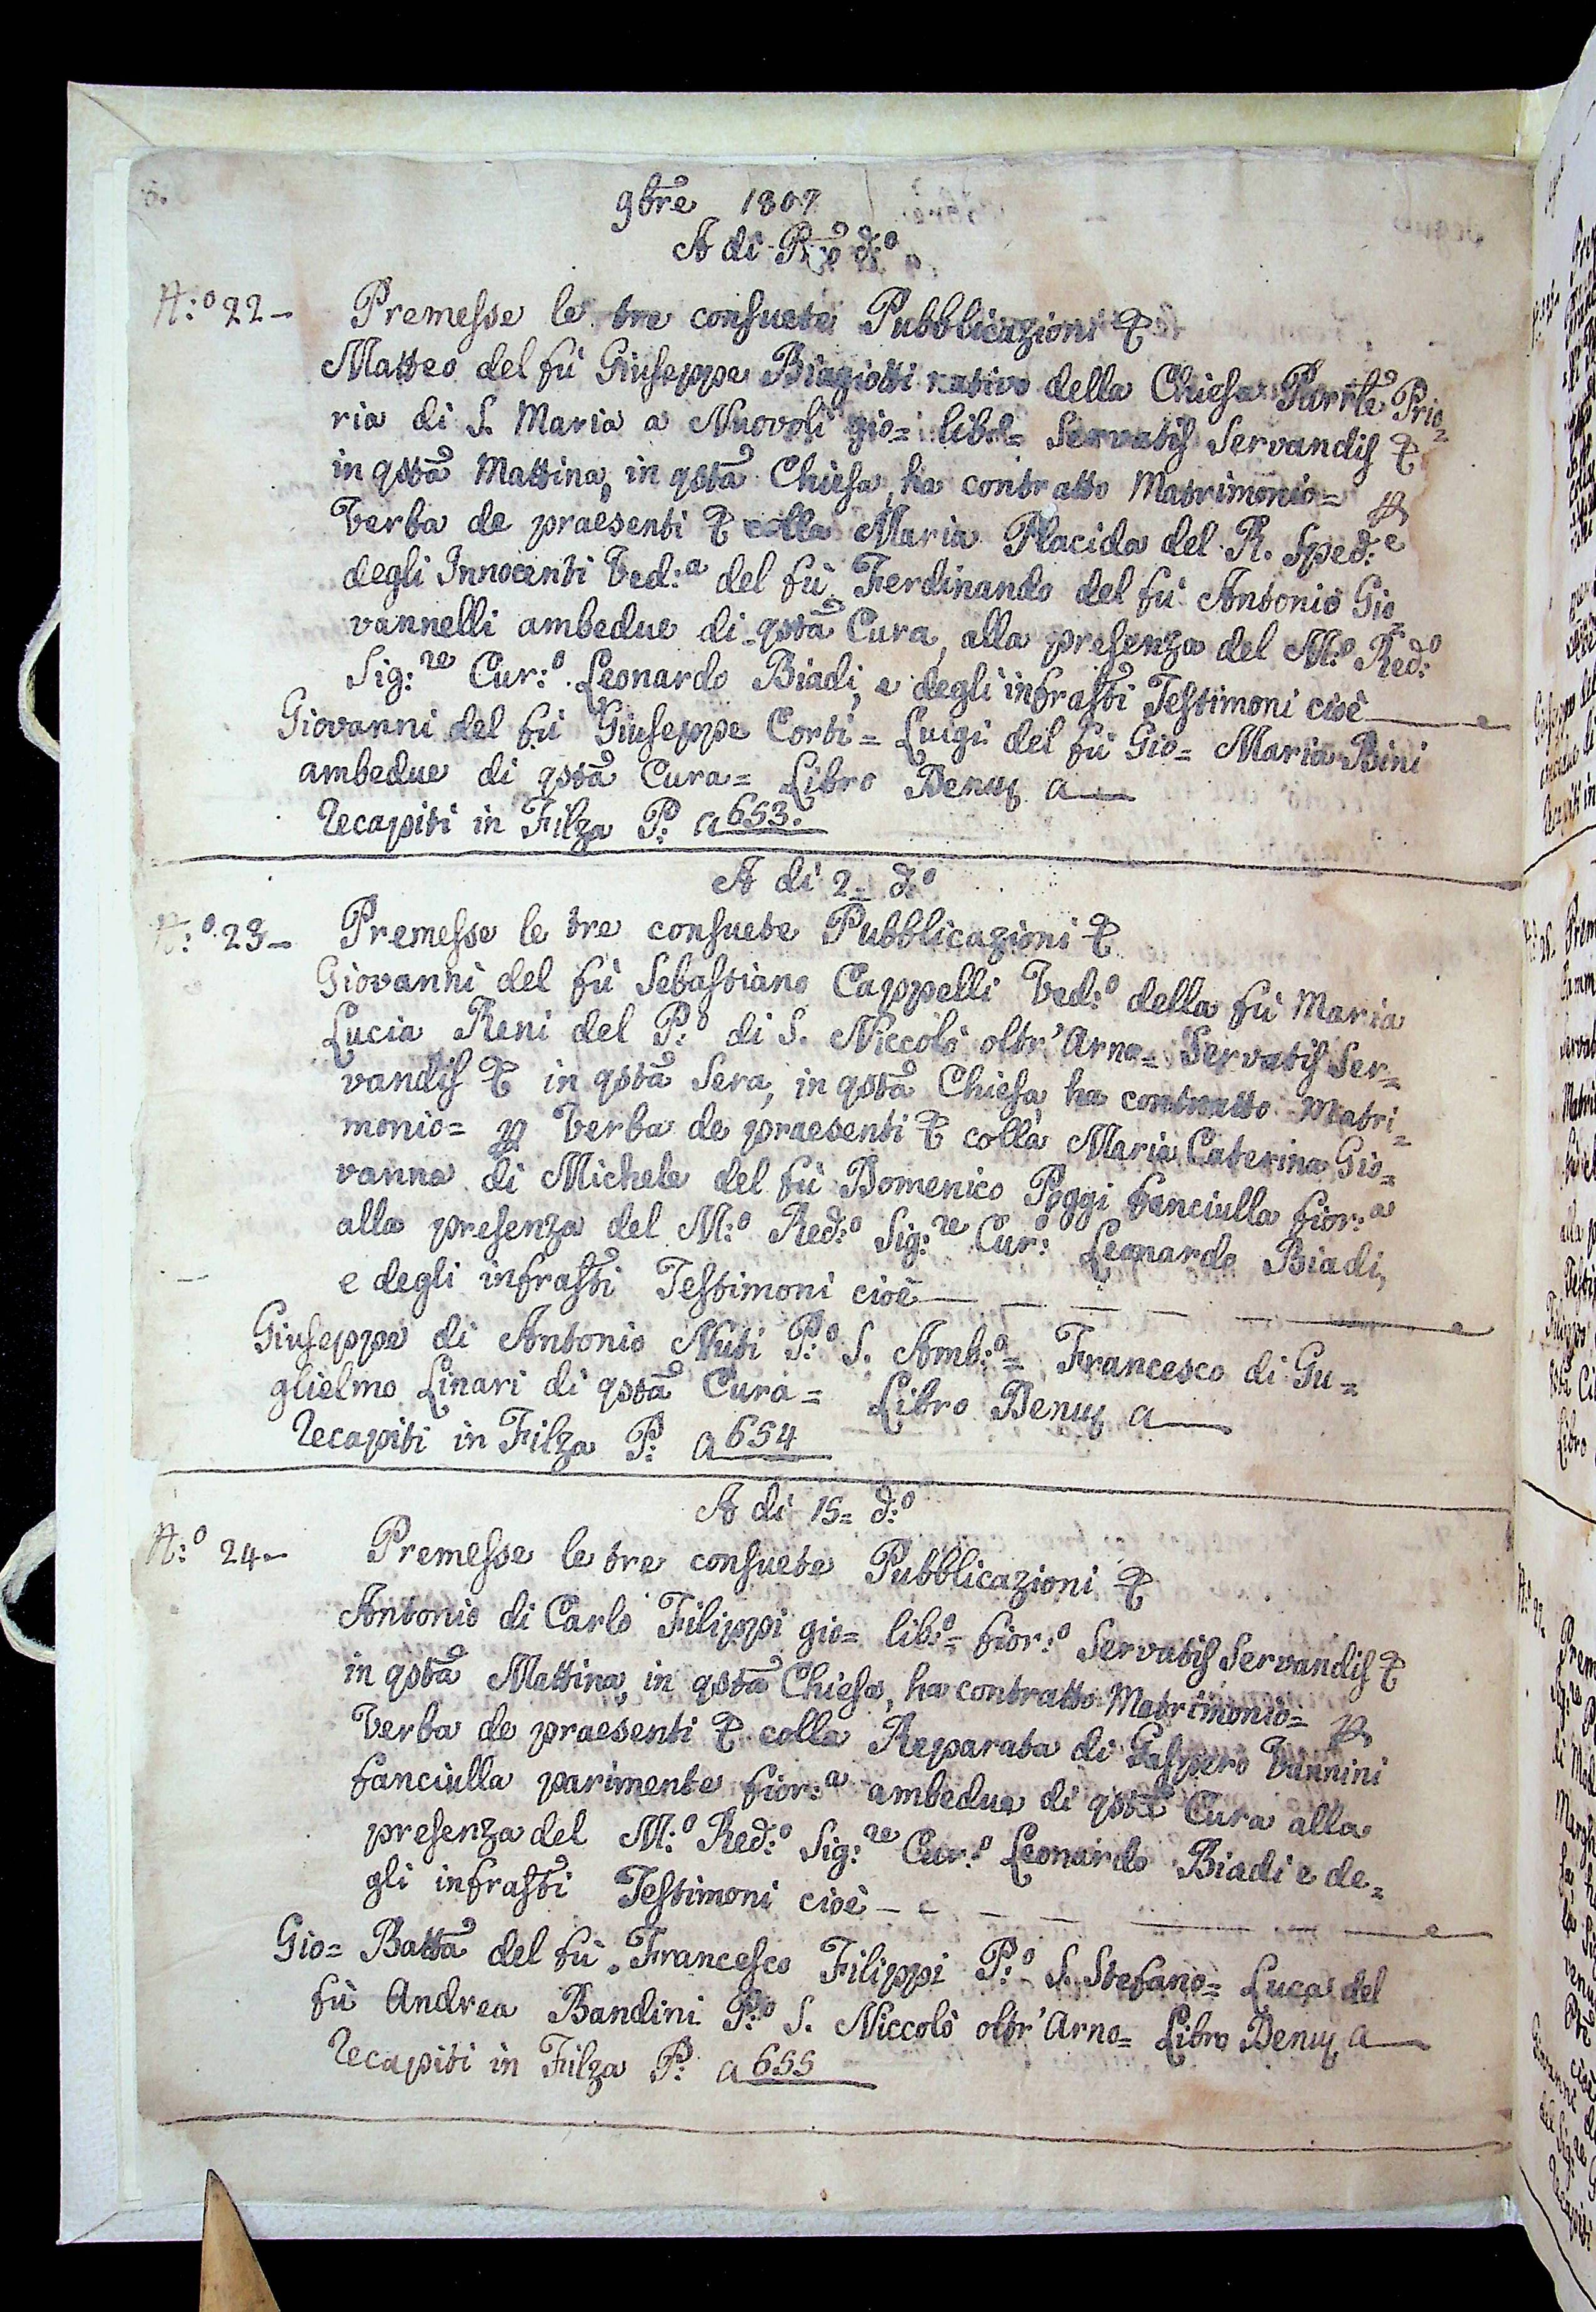 9bre 1807
A di Pmo d:o
N:o 22- Premesse le tre consuete Pubblicazioni &
Matteo del fù Giuseppe Biagiotti nativo della Chiesa Parrle Prio=
ria di S. Maria a Nuovoli gio= libo= Servatis Servandis &
in qsta Mattina, in qsta Chiesa, ha contratto Matrimonio= p
Verba de praesenti & colla Maria Placida del R. Sped:e
degli Innocenti Ved:a del fù Ferdinando del fù Antonio Gio=
vannelli ambedue di qsta Cura, alla presenza del M:o Red:o
Sig:re Cur:o Leonardo Biadi, e degli infrasti Testimoni cioè
Giovanni del fù Giuseppe Corti= Luigi del fù Gio= Maria Bini
ambedue di qsta Cura= Libro Denuz a
Recapiti in Filza P: a 653.
A di 2= d:o
N:o 23- Premesse le tre consuete Pubblicazioni &
Giovanni del fù Sebastiano Cappelli Ved:o della fù Maria
Lucia Reni del P:o di S. Niccolò oltr'Arno= Servatis Ser=
vandis & in qsta Sera, in qsta Chiesa ha contratto Matri=
monio= p Verba de praesenti & colla Maria Caterina Gio=
vanna di Michele del fù Domenico Poggi fanciulla fior:a
alla presenza del M:o Red:o Sig:re Cur:o Leonardo Biadi,
e degli infrasti Testimoni cioè
Giuseppe di Antonio Nuti P:o S. Amb:o= Francesco di Gu=
glielmo Linari di qsta Cura= Libro Denuz a
Recapiti in Filza P: a 654
A di 15= d:o
N:o 24- Premesse le tre consuete Pubblicazioni &
Antonio di Carlo Filippi gio= lib:o= fior:o Servatis Servandis &
in qsta Mattina, in qsta Chiesa, ha contratto Matrimonio= p
Verba de praesenti & colla Reparata di Gaspero Vannini
fanciulla parimente fior:a ambedue di qsta Cura alla
presenza del M:o Red:o Sig:re Cur:o Leonardo Biadi e de=
gli infrasti Testimoni cioè
Gio= Batta del fù Francesco Filippi P:o S. Stefano= Luca del
fù Andrea Bandini P:o S. Niccolò oltr'Arno= Libro Denuz a
Recapiti in Filza P: a 655